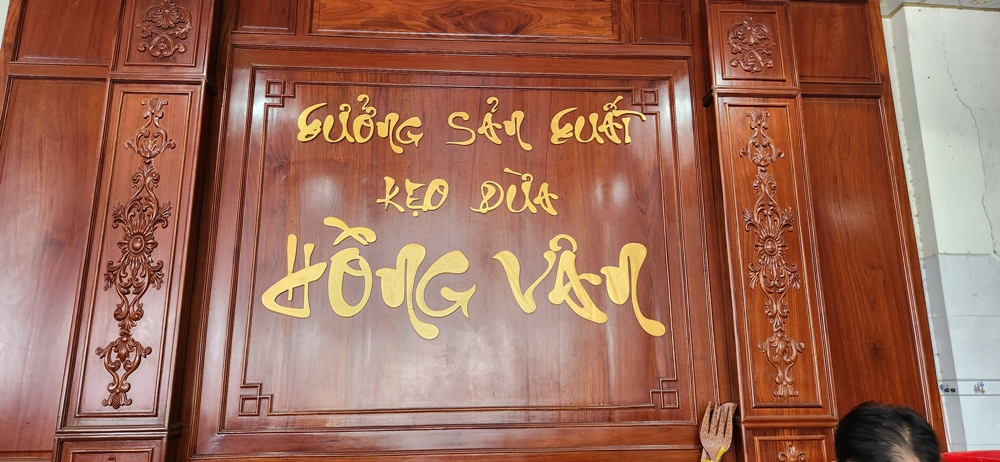 XƯỞNG SẢN XUẤT
KẸO DỪA
HỒNG VÂN